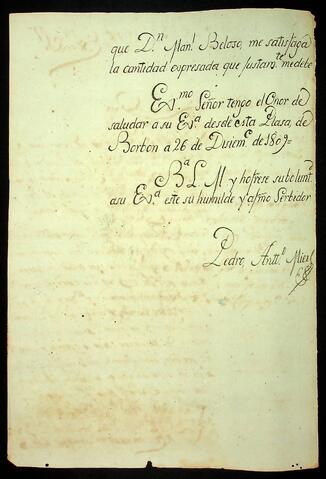 que D.ⁿ Man.ˡ Beloso, me satisfaga
la cantidad espresada que justam.ᵗᵉ me debe
Ex.ᵐᵒ Señor tengo el Onor de
saludar a su Ex.ᵃ desde esta Plasa, de
Borbon a 26 de Disiem.ᵉ de 1809=
B.ᵃ L. M y hofrese su bolunt.
asu Ex.ᵃ este su humilde y afmo Serbidor
Pedro, Antt.º